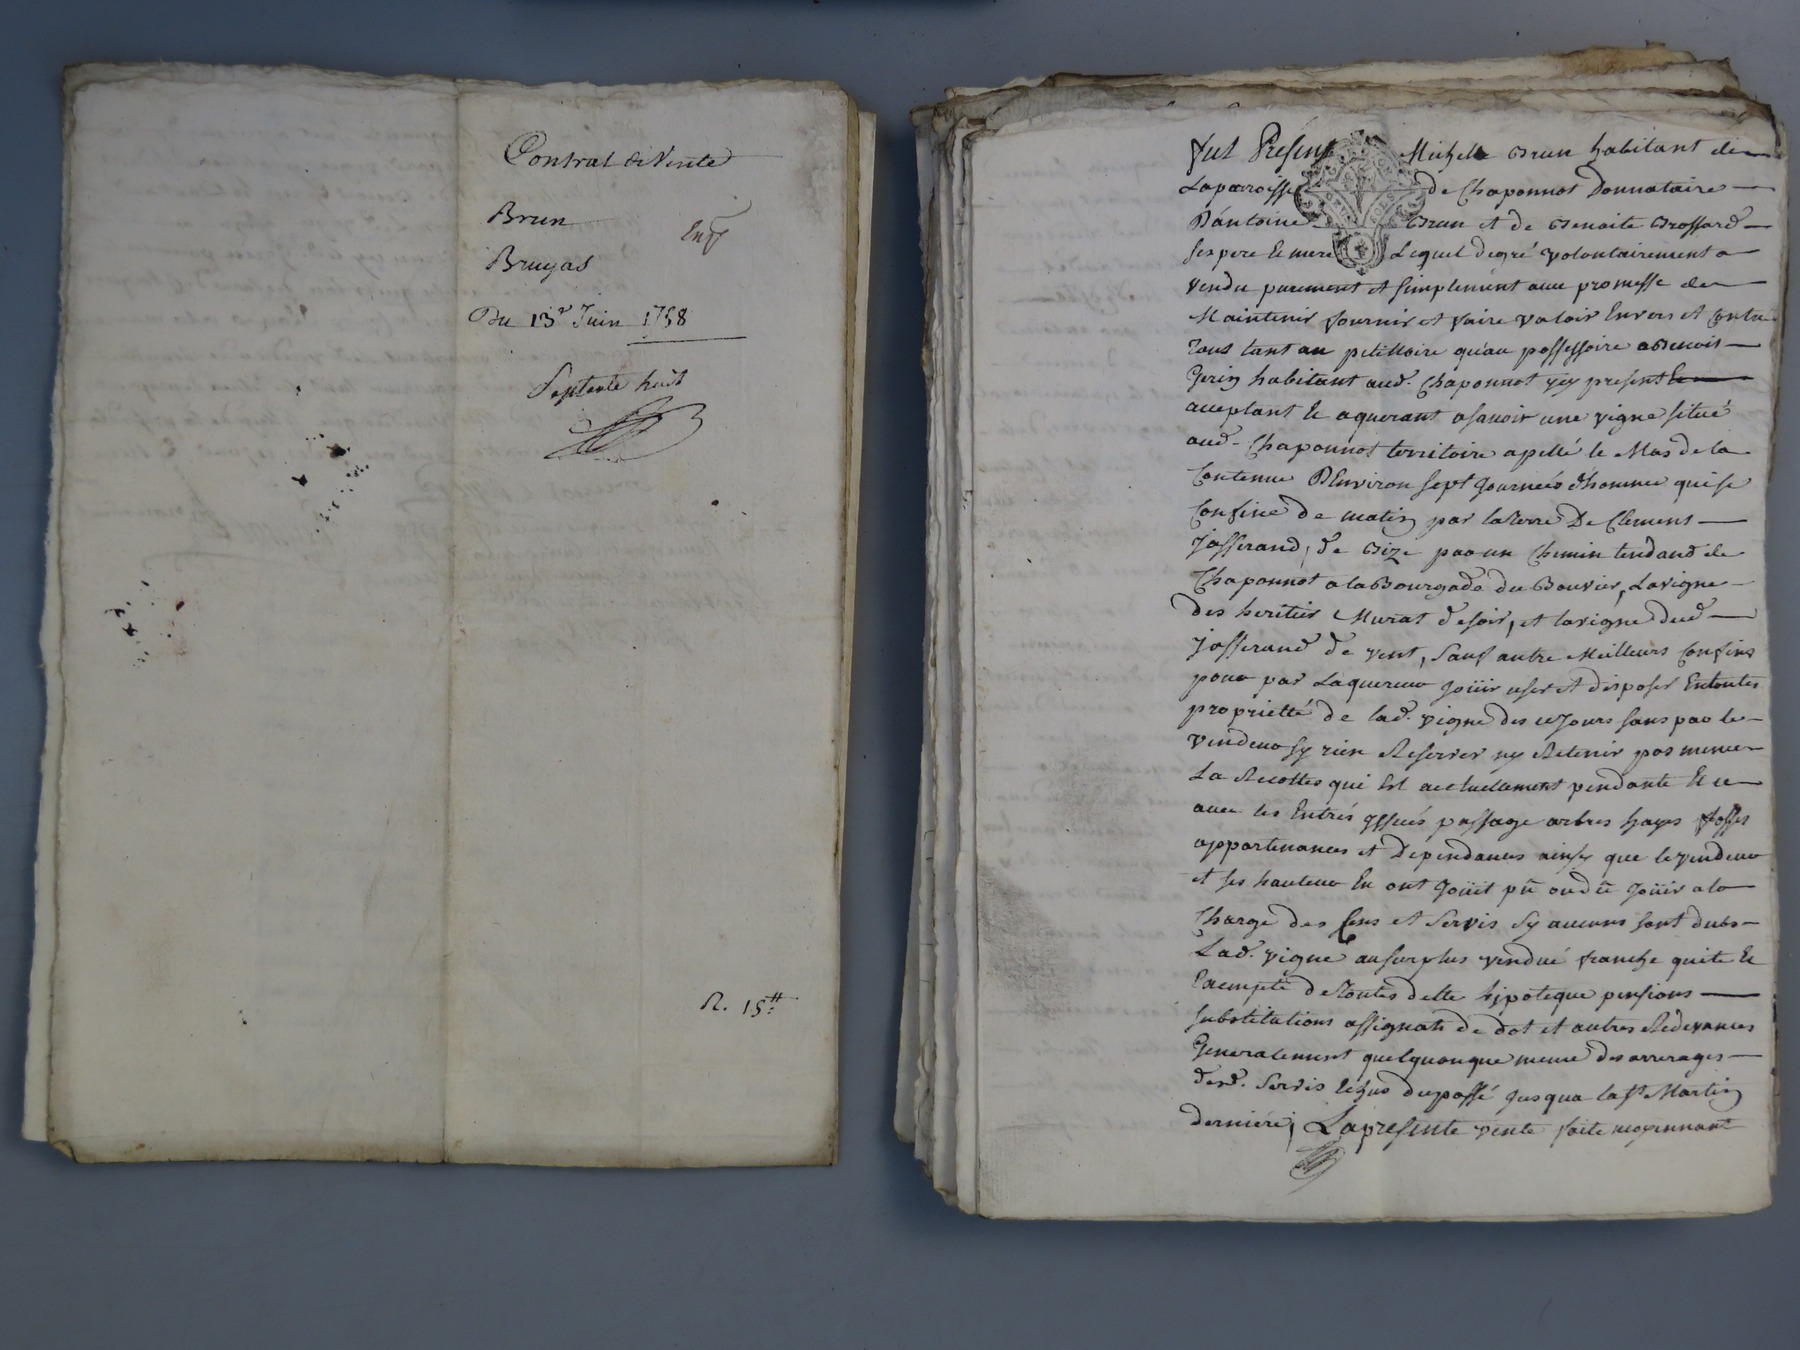 Contrat de Vente
Brun
Bruyas
Du 13e Juin 1758
Septente huit
R. 15tt
fut Présent Michel Brun habitant de
Laparroisse de Chaponnot Donnataire
D'antoine Brun et de Benoite Brossard
ses pere & mere Lequel degré volontairement a
vendu purement et simplement avec promesse de
Maintenir fournir et faire valoir Envers et Contre
Tous tant au petittoire qu'au possessoire a Benoit
habitant aud. Chaponnot yey present &
acceptant & aquerant a savoir une vigne situé
aud. Chaponnot territoire apellé le Mas de la
Contenue D'Environ sept Journeés d'homme qui se
Confine de matin par la Terre De Clement
Josserand, de Bize par un Chemin tendand de
Chaponnot a la Bourgade du Bouvier, La vigne
des heritier Murat de soir, et la vigne dud.
Josserand de vent, Sauf autre Meilleurs Confins
pour par Laquereur Joüir user et disposer En toutes
proprietté de lad. vigne des ce Jours sans par le
vendeur sy rien Reserver ny Retenir pas meme
La Recoltes qui Est actuellement pendante Et ce
avec les Entrés yssues passage arbres hayes fosses
appartenances et Dependances ainsy que le vendeur
et ses hauteur En ont Joüit pû ou dû Joüir a la
Charge des Cens et Servis sy aucuns sont dubs
Lad. vigne au surplus vendué franche quite &
Exempte de Toutes dette hipoteque pensions
substitutions assignats de dot et autres Redevances
Generalement quelquonque meme des arrerages
desd. Servis du passé Jusqua la St Martin
derniere, La presente vente faite moyennant